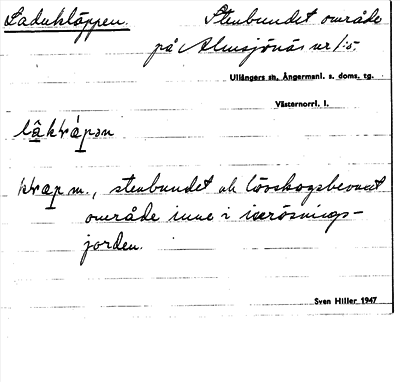 Ladukläppen. Stenbundet område
på Almsjönäs nr 1:5.
Ullångers sn, Ångermanl. s. doms. tg.
Västernorrl. l.
m., stenbundet och lövskogsbevuxet
område inne i
jorden.
Sven Hiller 1947